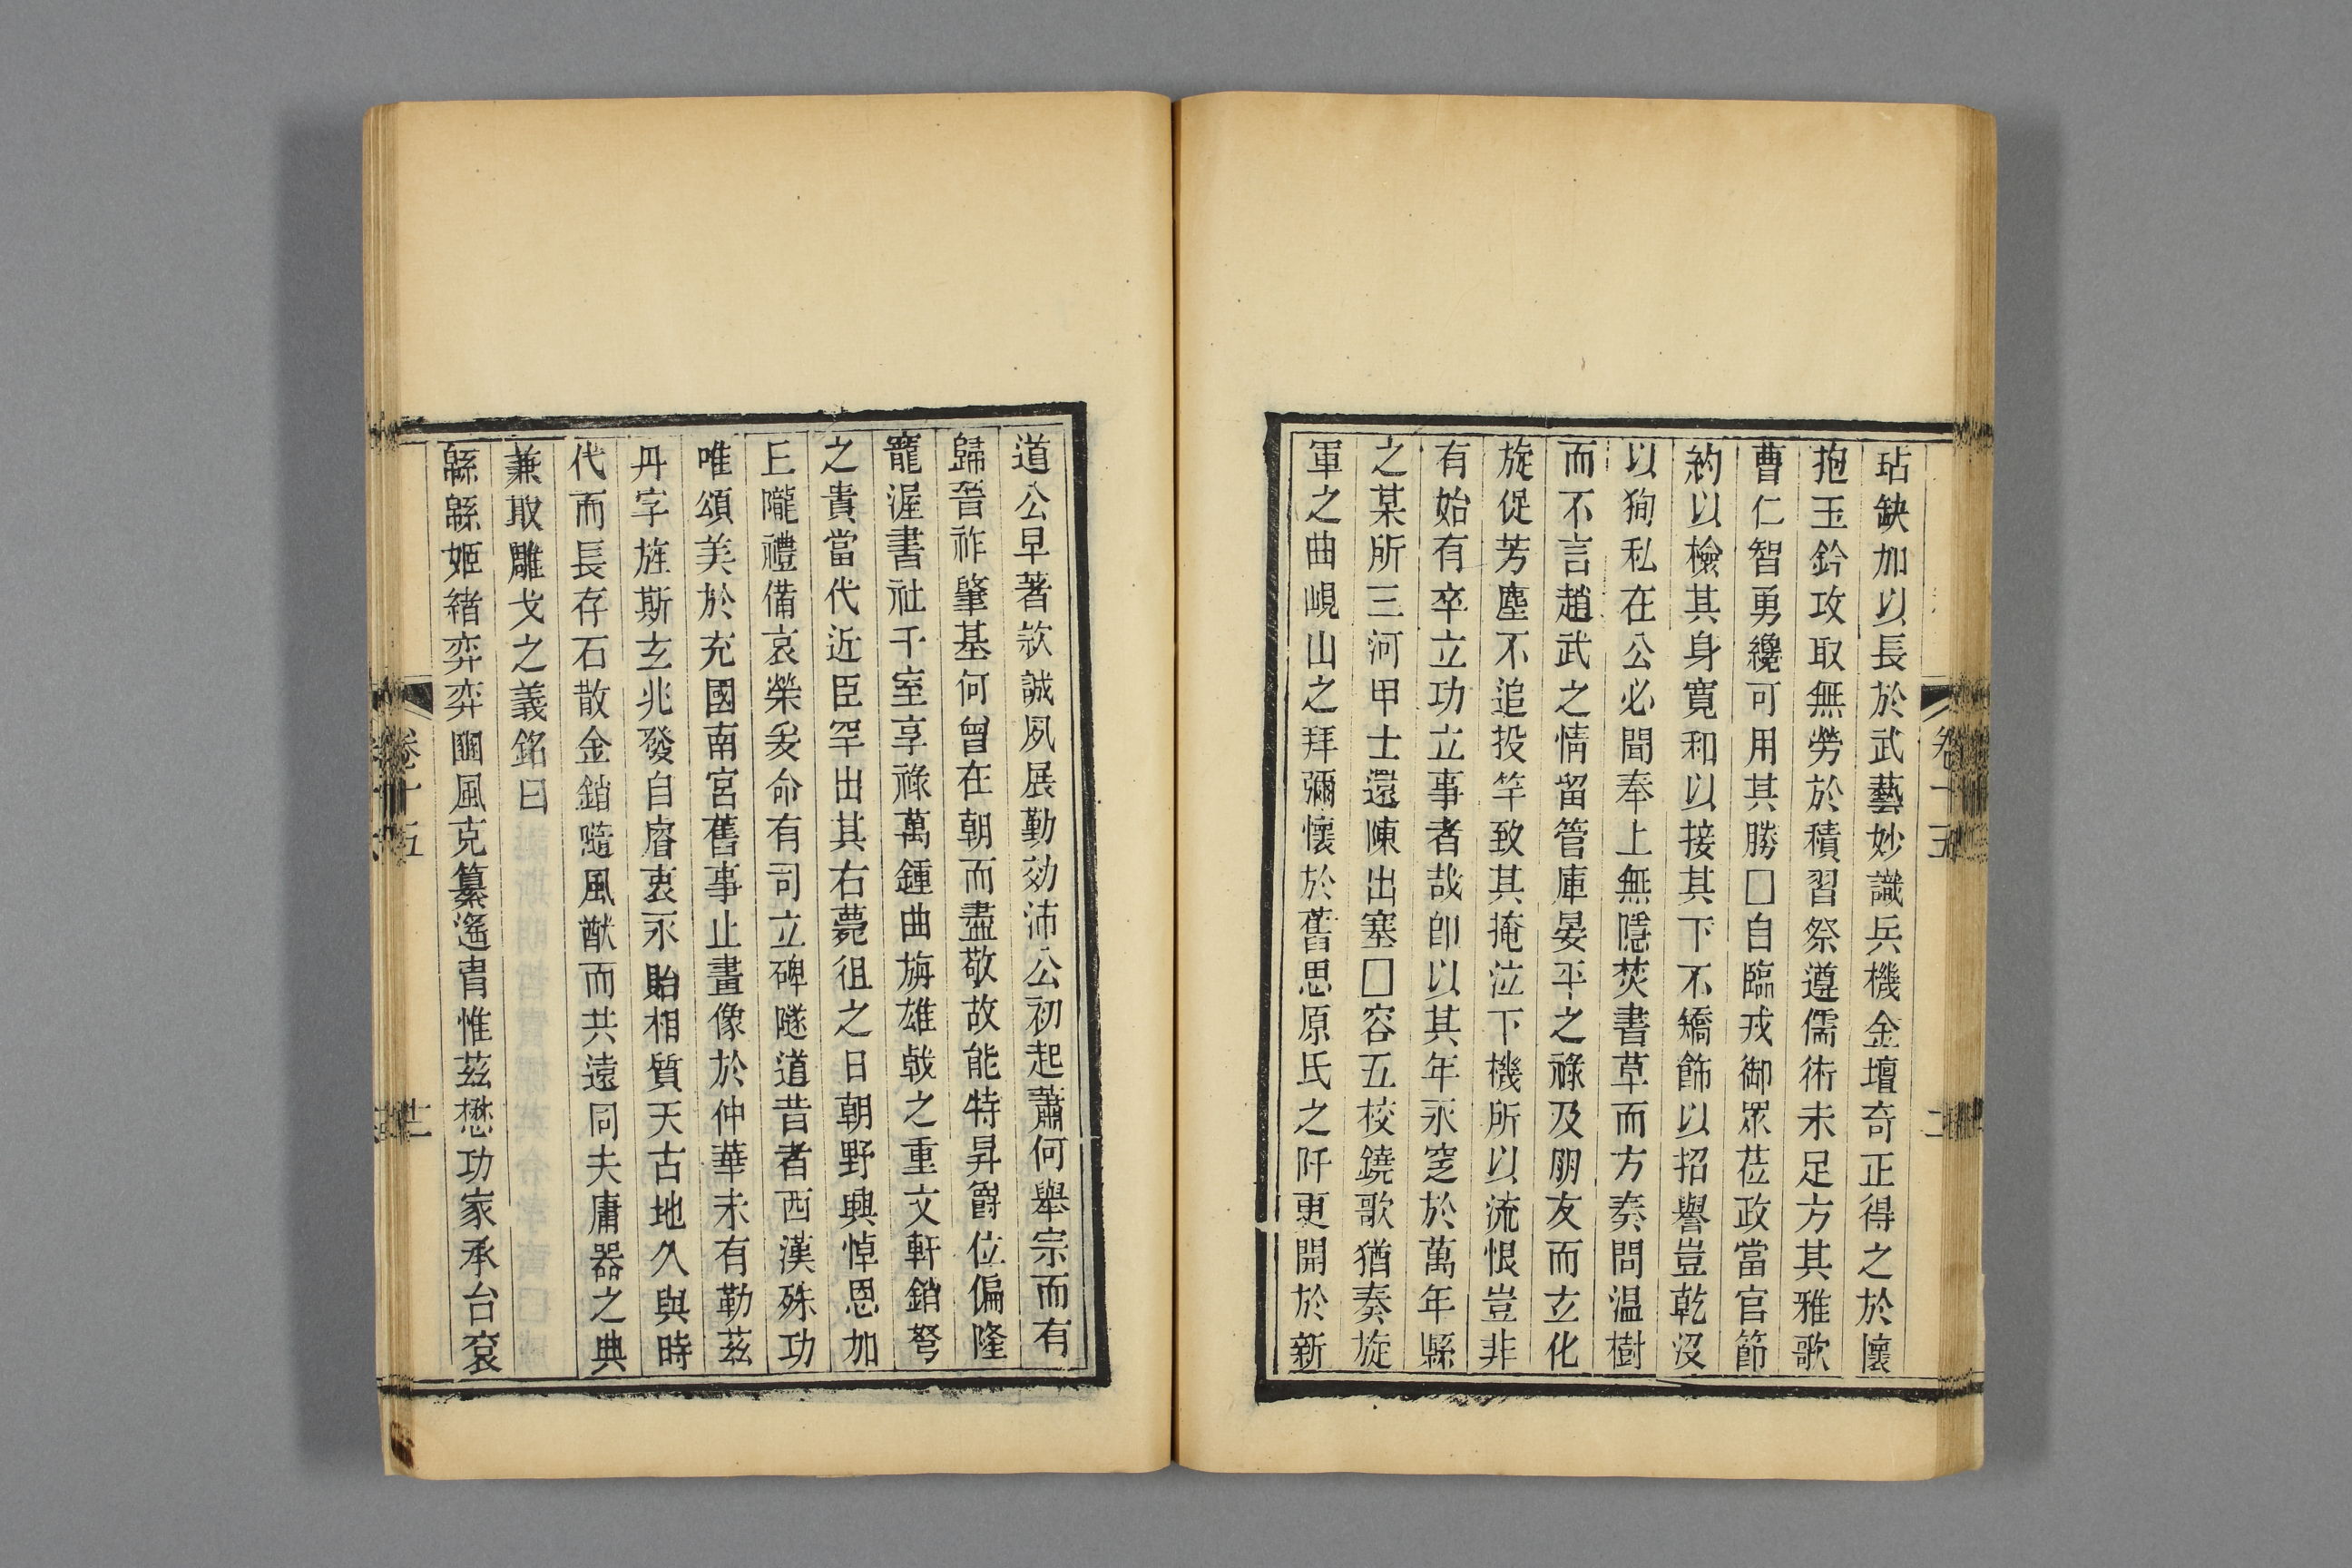 玷缺加以長於武藝妙識兵機金壇奇正得之於懷
抱玉鈐攻取無勞於積習祭遵儒術未足方其雅歌
曹仁智勇纔可用其勝□自臨戎御眾莅政當官節
約以檢其身寬和以接其下不矯飾以招譽豈乾沒
以狥私在公必聞奉上無隱焚書草而方奏問温樹
而不言趙武之情留管庫晏平之祿及朋友而玄化
旋促芳塵不追投竿致其掩泣下機所以流恨豈非
有始有卒立功立事者哉卽以其年永窆於萬年縣
之某所三河甲士還陳出塞□容五校鐃歌猶奏旋
軍之曲峴山之拜彌懷於舊思原氏之阡更開於新
道公早著款誠夙展勤効沛公初起蕭何舉宗而有
歸晉祚肇基何曾在朝而盡敬故能特昇爵位偏隆
寵渥書社千室享祿萬鍾曲旃雄戟之重文軒銷弩
之貴當代近臣罕出其右薨徂之日朝野興悼恩加
丘隴禮備哀榮爰命有司立碑隧道昔者西漢殊功
唯頌美於充國南宮舊事止畫像於仲華未有勒茲
丹字旌斯玄兆發自睿衷永貽相質天古地久與時
代而長存石散金銷隨風猷而共遠同夫庸器之典
兼取雕戈之義銘曰
緜緜姬緒弈弈豳風克纂遙胄惟茲懋功家承台袞
卷十五
卷十五